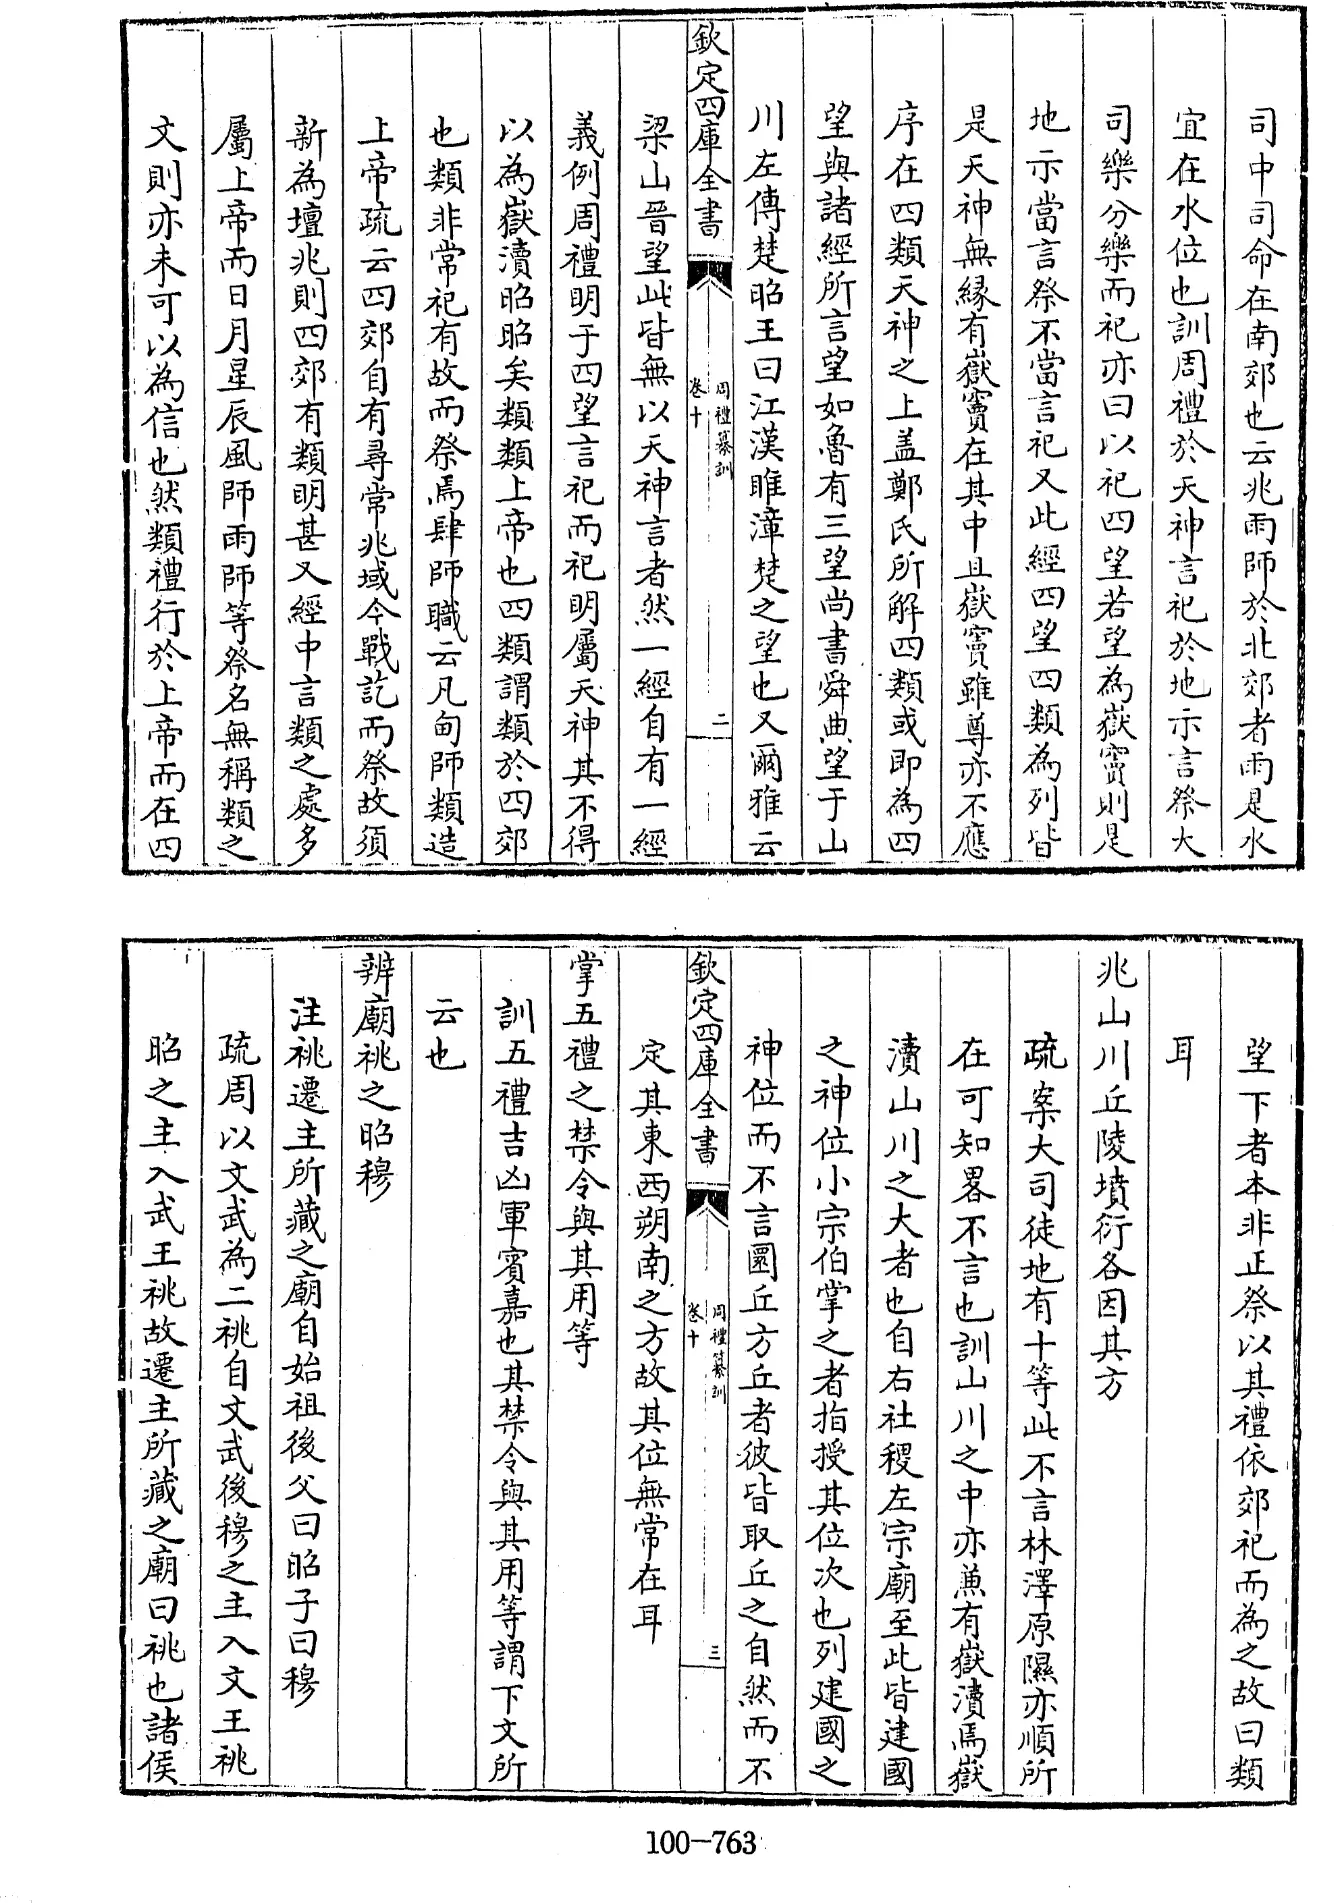 司中司命在南郊也云兆雨師於北郊者雨是水
宜在水位也訓周禮於天神言祀於地示言祭大
司樂分樂而祀亦曰以祀四望若望為嶽竇則是
地示當言祭不當言祀又此經四望四類為列皆
是天神無縁有嶽竇在其中且嶽竇雖尊亦不應
序在四類天神之上盖鄭氏所解四類或即為四
望與諸經所言望如魯有三望尚書舜典望于山
川左傳楚昭王曰江漢睢漳楚之望也又爾雅云
欽定四庫全書
周禮纂訓
卷十
二
梁山晉望此皆無以天神言者然一經自有一經
義例周禮明于四望言祀而祀明屬天神其不得
以為嶽瀆昭昭矣類類上帝也四類謂類於四郊
也類非常祀有故而祭焉肆師職云凡甸師類造
上帝疏云四郊自有尋常兆域今戰訖而祭故須
新為壇兆則四郊有類明甚又經中言類之處多
屬上帝而日月星辰風師雨師等祭名無稱類之
文則亦未可以為信也然類禮行於上帝而在四
望下者本非正祭以其禮依郊祀而為之故曰類
耳
兆山川丘陵墳衍各因其方
疏案大司徒地有十等此不言林澤原隰亦順所
在可知畧不言也訓山川之中亦兼有嶽瀆焉嶽
瀆山川之大者也自右社稷左宗廟至此皆建國
之神位小宗伯掌之者指授其位次也列建國之
神位而不言圜丘方丘者彼皆取丘之自然而不
欽定四庫全書
周禮纂訓
卷十
三
定其東西朔南之方故其位無常在耳
掌五禮之禁令與其用等
訓五禮吉凶軍賓嘉也其禁令與其用等謂下文所
云也
辨廟祧之昭穆
注祧遷主所藏之廟自始祖後父曰昭子曰穆
疏周以文武為二祧自文武後穆之主入文王祧
昭之主入武王祧故遷主所藏之廟曰祧也諸侯
100-763